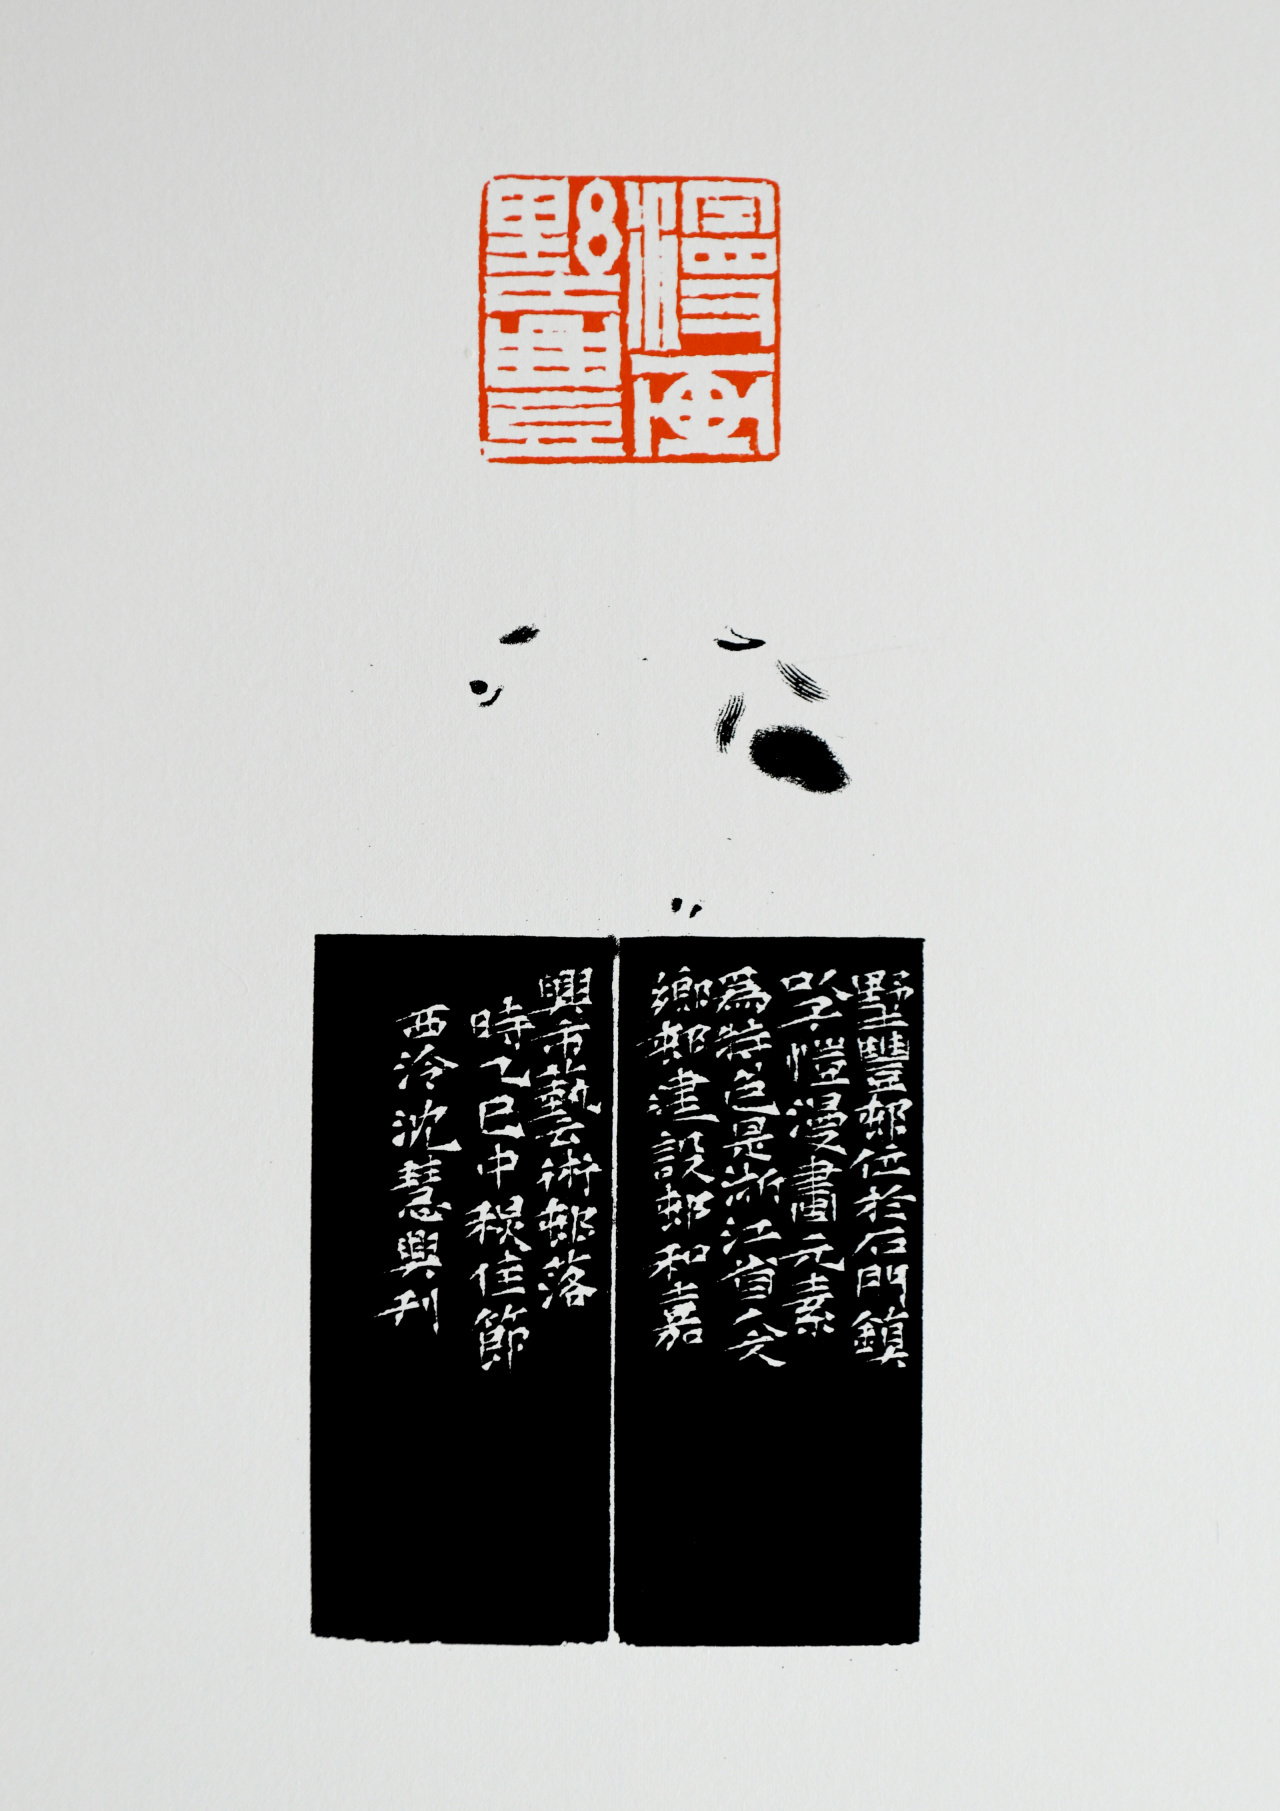 漫画
墅豐
墅豐邨位於石門鎮
以子愷漫畫元素
爲特色是浙江省文
鄉邨建設邨和嘉
興市藝術邨落
時乙巳中秋佳節
西泠沈慧興刊